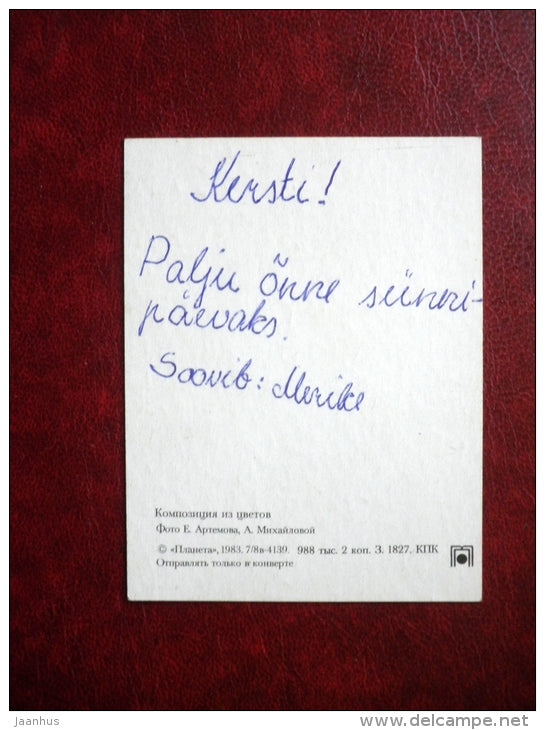 Kersti!
Palju õnne sünni-
päevaks.
Soovib: Merike
Композиция из цветов
Фото Е. Артемова, А. Михайловой
© «Планета», 1983. 7/8в-4139. 988 тыс. 2 коп. З. 1827. КПК
Отправлять только в конверте
jaanhus
www.delcampe.net